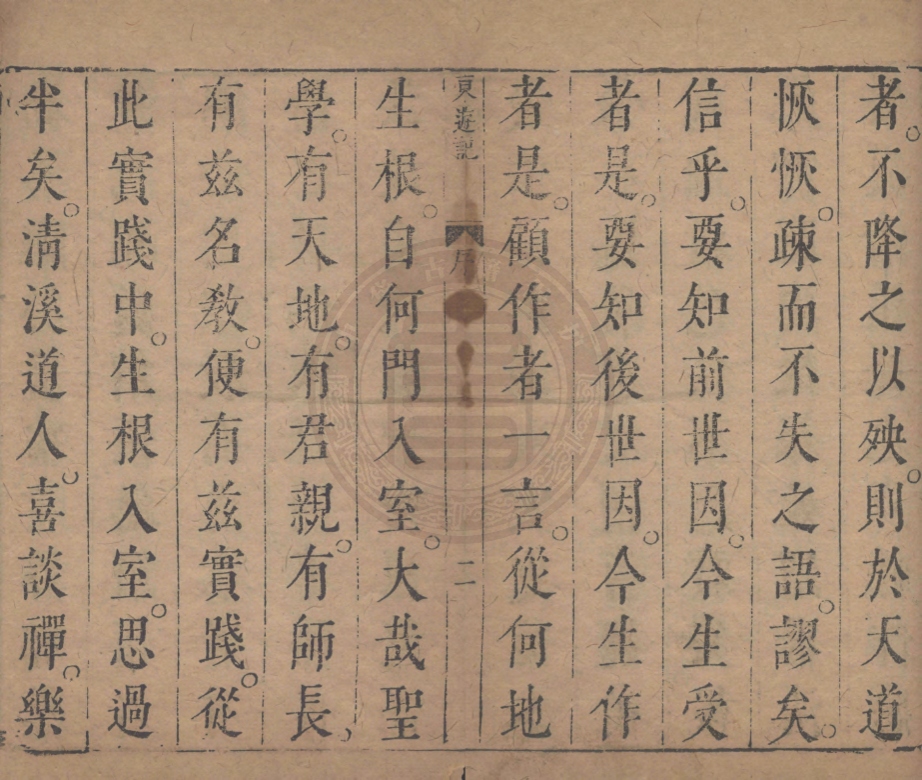 者。不降之以殃。則於天道
恢恢疎。而不失之語。謬矣。
信乎。要知前世因。今生受
者是。要知後世因。今生作
者是。顧作者一言。從何地
東遊記 序 二
生根。自何門入室。大哉聖
學。有天地。有君親。有師長、
有茲名敎。便有茲實踐。從
此實踐中。生根入室。思過
半矣。淸溪道人。喜談禪。樂